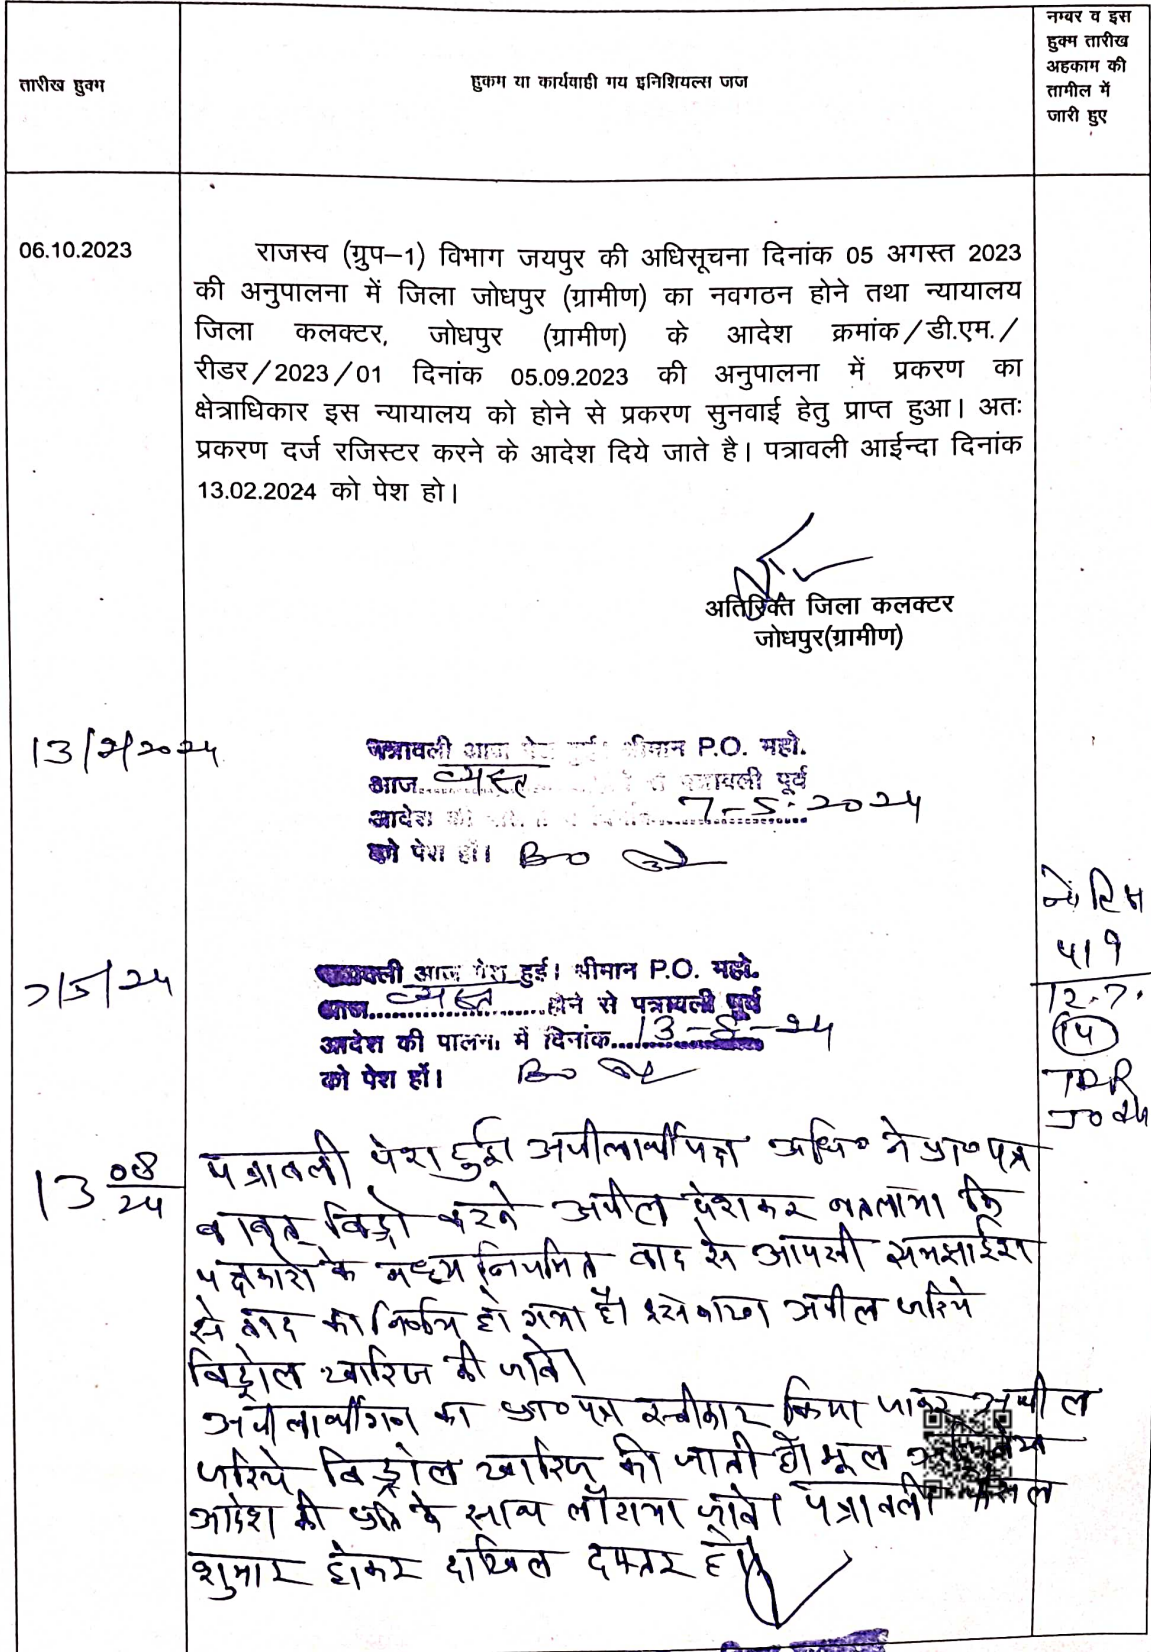 तारीख हुक्म
हुकम या कार्यवाही मय इनिशियल्स जज
नम्बर व इस
हुक्म तारीख
अहकाम की
तामील में
जारी हुए
06.10.2023
राजस्व (ग्रुप–1) विभाग जयपुर की अधिसूचना दिनांक 05 अगस्त 2023
की अनुपालना में जिला जोधपुर (ग्रामीण) का नवगठन होने तथा न्यायालय
जिला कलक्टर, जोधपुर (ग्रामीण) के आदेश क्रमांक/डी.एम./
रीडर/2023/01 दिनांक 05.09.2023 की अनुपालना में प्रकरण का
क्षेत्राधिकार इस न्यायालय को होने से प्रकरण सुनवाई हेतु प्राप्त हुआ। अतः
प्रकरण दर्ज रजिस्टर करने के आदेश दिये जाते है। पत्रावली आईन्दा दिनांक
13.02.2024 को पेश हो।
अतिरिक्त जिला कलक्टर
जोधपुर(ग्रामीण)
13/2/2024
पत्रावली आज पेश हुई। श्रीमान P.O. महो.
आज व्यस्त होने से पत्रावली पूर्व
आदेश की दिनांक 7-5-2024
को पेश हों।
7/5/24
पत्रावली आज पेश हुई। श्रीमान P.O. महो.
आज व्यस्त होने से पत्रावली पूर्व
आदेश की पालना में दिनांक 13-8-24
को पेश हों।
नोटिस
419
12.7.
(14)
13 08/24
पत्रावली पेश हुई अपीलार्थीपक्ष अधि० ने प्रा०पत्र
बाबत् विड्रो करने अपील पेशकर बतलाया कि
पक्षकारो के मध्य नियमित वाद से आपसी समझाईश
से वाद का निर्णय हो गया है। अपील जरिये
विड्रोल खारिज की जावे।
अपीलार्थीगण का प्रा०पत्र स्वीकार किया जाकर अपील
जरिये विड्रोल खारिज की जाती है। मूल
आदेश की प्रति के साथ लौटाया जावे। पत्रावली फैसल
शुमार होकर दाखिल दफ्तर हो।